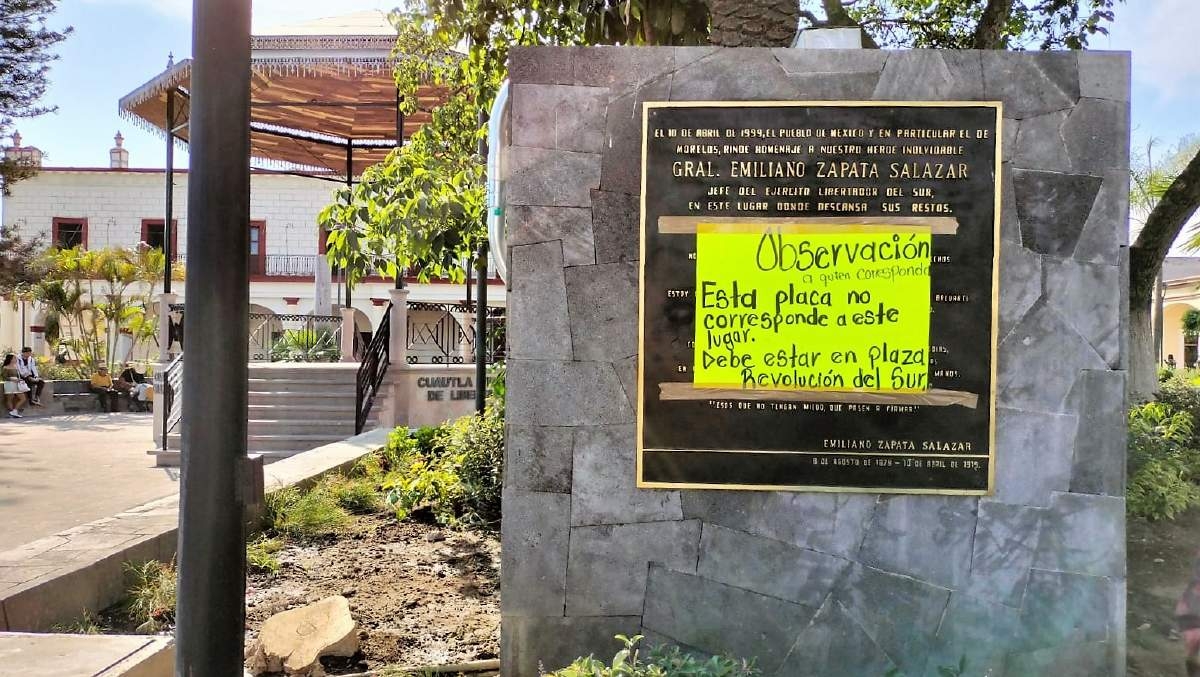 EL 10 DE ABRIL DE 1999, EL PUEBLO DE MEXICO Y EN PARTICULAR EL DE
MORELOS, RINDE HOMENAJE A NUESTRO HEROE INOLVIDABLE
GRAL. EMILIANO ZAPATA SALAZAR
JEFE DEL EJERCITO LIBERTADOR DEL SUR,
EN ESTE LUGAR DONDE DESCANSA SUS RESTOS.
Observación
a quien corresponda
Esta placa no
corresponde a este
lugar.
Debe estar en plaza
Revolución del Sur.
ESTOY
BALUARTE
EN
MANOS.
"ESOS QUE NO TENGAN MIEDO, QUE PASEN A FIRMAR"
EMILIANO ZAPATA SALAZAR
8 DE AGOSTO DE 1879 - 10 DE ABRIL DE 1919.
CUAUTLA
DE LIBER